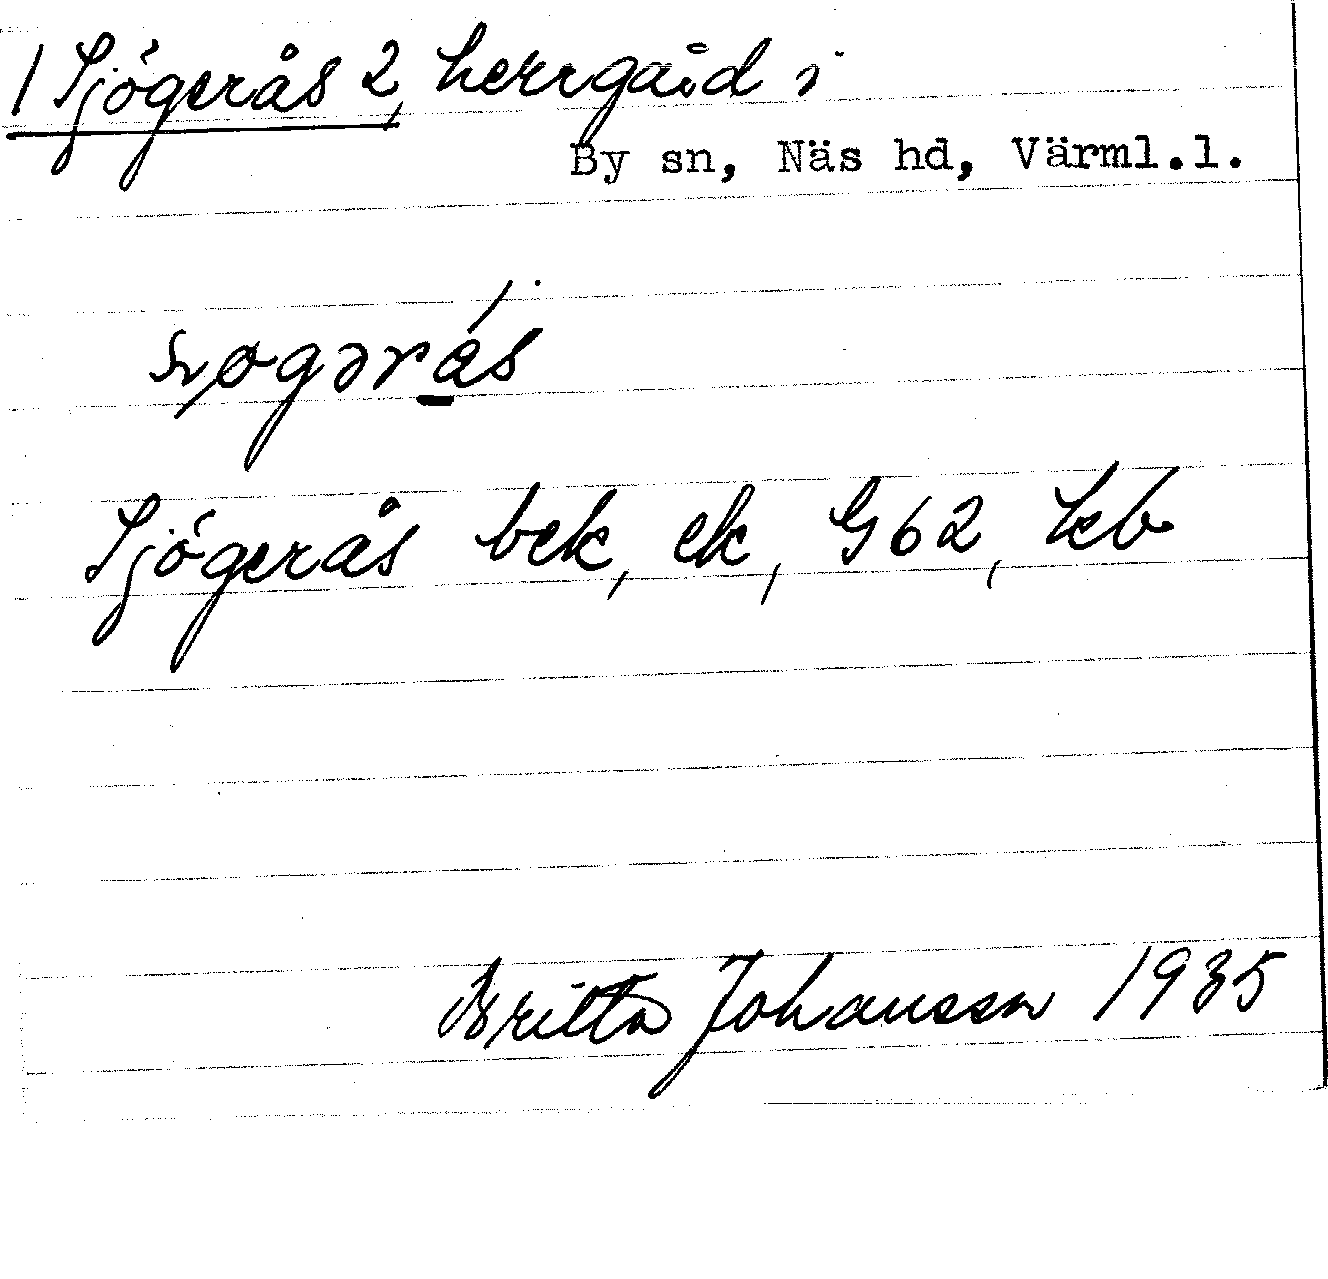 1 Sjögerås 2, herrgård i
By sn, Näs hd, Värml.l.
Sjögerås bek, ek, G 62, kb
Britta Johansson 1935